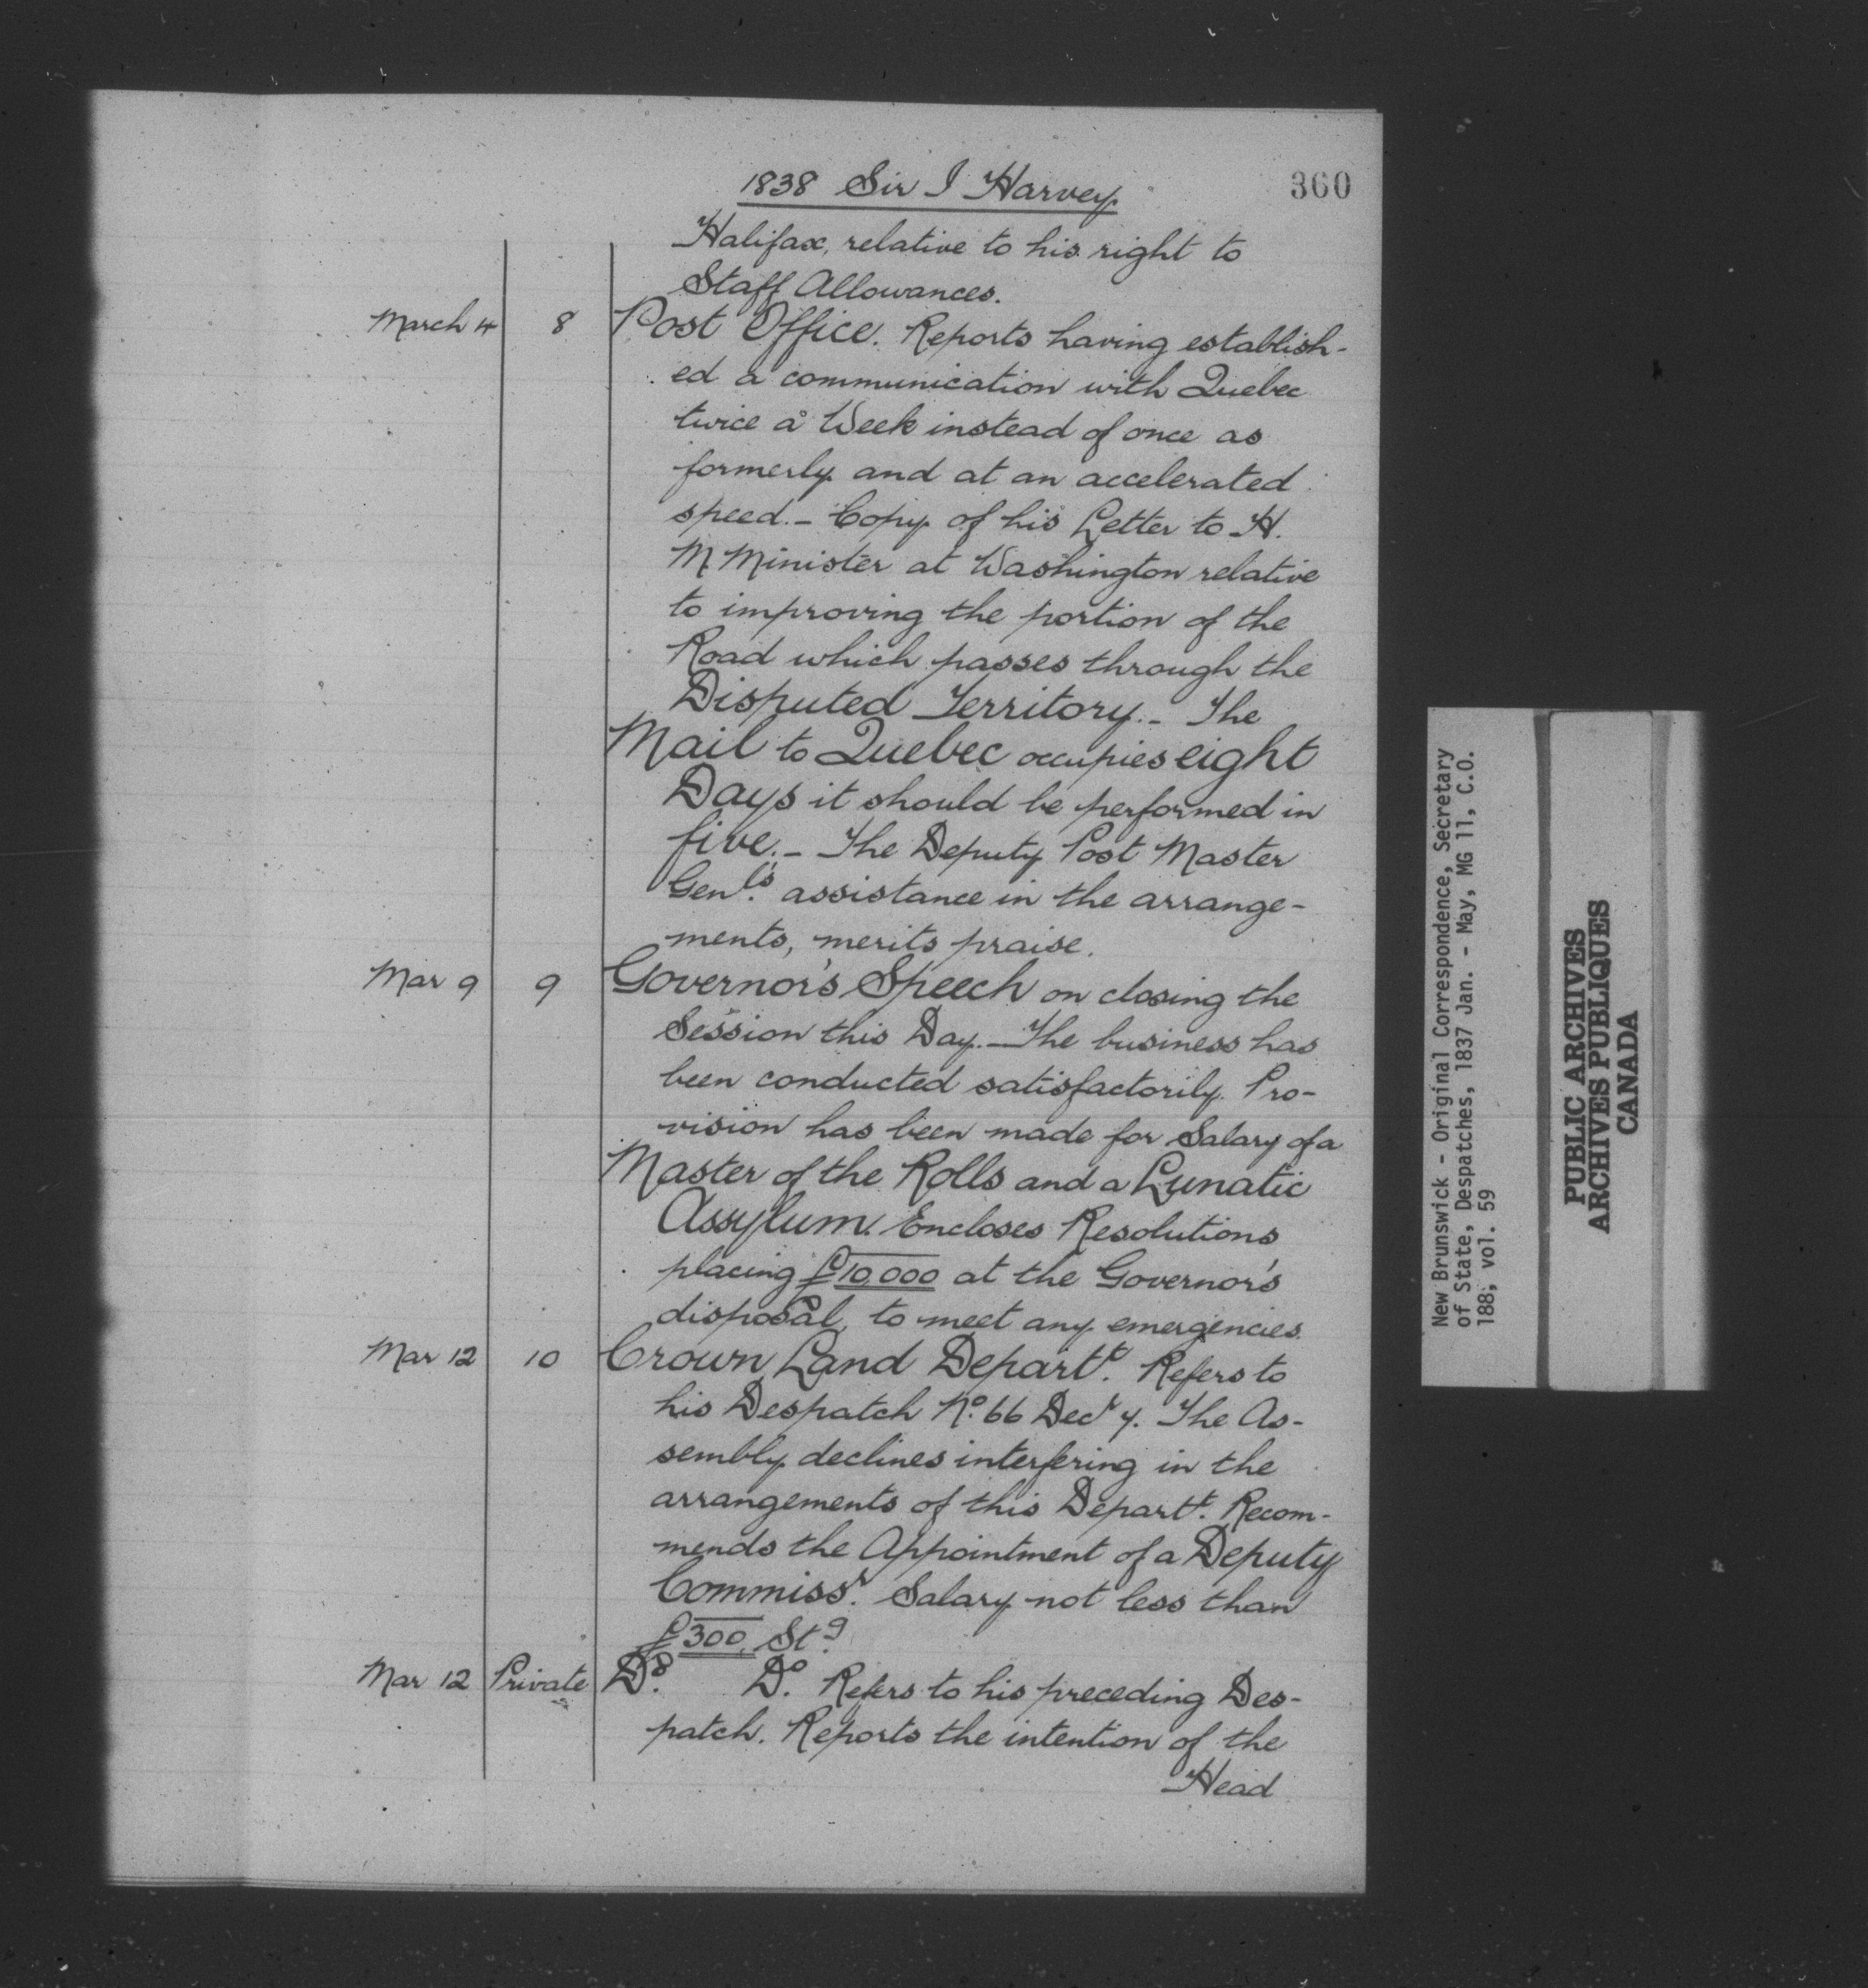 360
1838 Sir J Harvey.
Halifax, relative to his right to
Staff Allowances.
March 4 8 Post Office. Reports having establish-
ed a communication with Quebec
twice a Week instead of once as
formerly and at an accelerated
speed. - Copy of his Letter to H.
M Minister at Washington relative
to improving the portion of the
Road which passes through the
Disputed Territory. - The
Mail to Quebec occupies eight
Days it should be performed in
five. - The Deputy Post Master
Genl's assistance in the arrange-
ments, merits praise.
Mar 9 9 Governor's Speech on closing the
Session this Day. - The business has
been conducted satisfactorily. Pro-
vision has been made for Salary of a
Master of the Rolls and a Lunatic
Assylum. Encloses Resolutions
placing £10,000 at the Governor's
disposal, to meet any emergencies.
Mar 12 10 Crown Land Departt. Refers to
his Despatch No. 66 Decr 7. The As-
sembly declines interfering in the
arrangements of this Departt. Recom-
mends the Appointment of a Deputy
Commissr. Salary not less than
£300, Stg.
Mar 12 Private Do. Do. Refers to his preceding Des-
patch. Reports the intention of the
Head
New Brunswick - Original Correspondence, Secretary
of State, Despatches, 1837 Jan. - May, MG 11, C.O.
188; vol. 59
PUBLIC ARCHIVES
ARCHIVES PUBLIQUES
CANADA